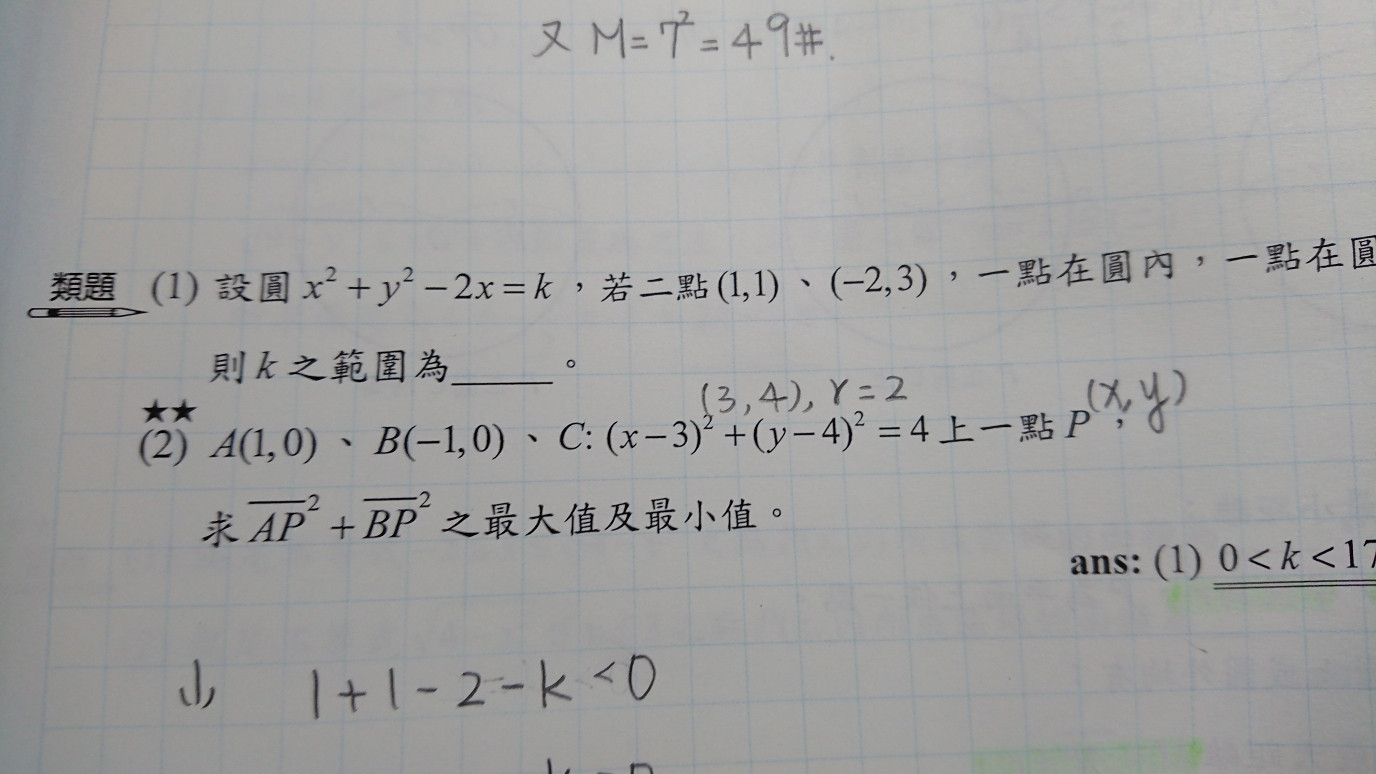 又 M=7²=49#.
類題 (1) 設圓 x²+y²−2x=k，若二點(1,1)、(−2,3)，一點在圓內，一點在圓
則 k 之範圍為_____。
(3,4), r=2
★★
(2) A(1,0)、B(−1,0)、C: (x−3)²+(y−4)²=4 上一點 P(x,y)，
求 AP² + BP² 之最大值及最小值。
ans: (1) 0<k<17
(1) 1+1−2−k<0